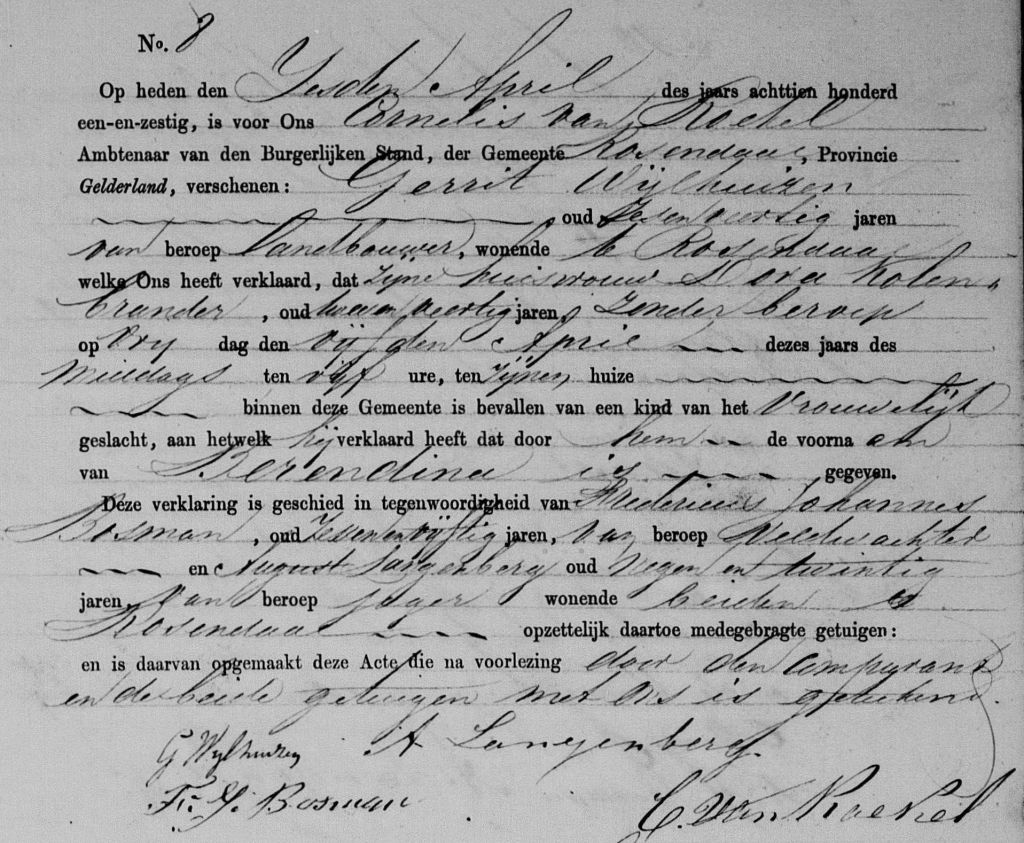 No. 8
Op heden den Zesden April des jaars achttien honderd
een-en-zestig, is voor Ons Cornelis van Roekel
Ambtenaar van den Burgerlijken Stand, der Gemeente Rosendaal, Provincie
Gelderland, verschenen: Gerrit Wijlhuizen
oud Zesenveertig jaren
van beroep landbouwer, wonende te Rosendaal
welke Ons heeft verklaard, dat zijne huisvrouw Dora Kolen-
brander, oud tweeen veertig jaren, zonder beroep
op Vry dag den vijfden April dezes jaars des
Middags ten vijf ure, ten zijnen huize
binnen deze Gemeente is bevallen van een kind van het Vrouwelijk
geslacht, aan hetwelk hij verklaard heeft dat door hem de voorna am
van Berendina is gegeven.
Deze verklaring is geschied in tegenwoordigheid van Fredericus Johannes
Bosman, oud Zesenenvijftig jaren, van beroep Veldwachter
en August Langenberg oud Negen en twintig
jaren, van beroep jager wonende beiden te
Rosendaal opzettelijk daartoe medegebragte getuigen:
en is daarvan opgemaakt deze Acte, die na voorlezing door den comparant
en de beide getuigen met Ons is geteekend.
G Wylhuizen A Langenberg.
Fr. J. Bosman C. Van Roekel